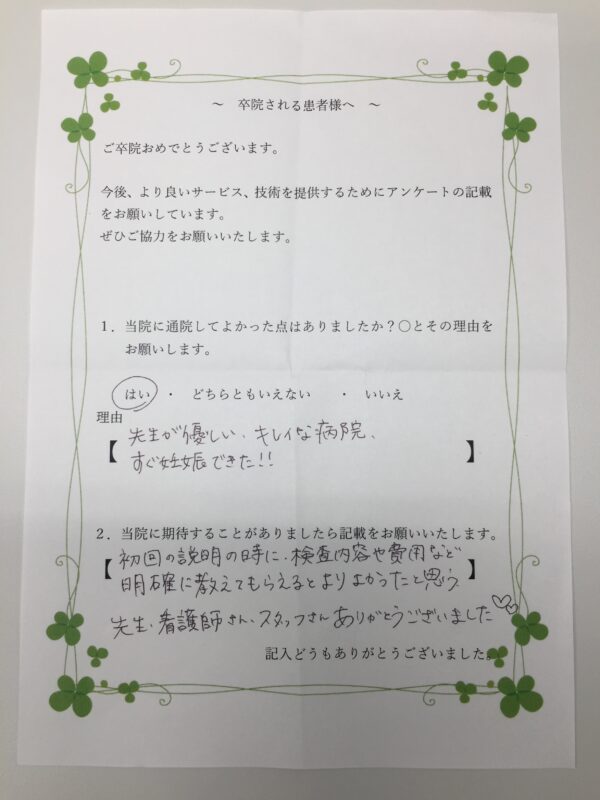 ～　卒院される患者様へ　～
ご卒院おめでとうございます。
今後、より良いサービス、技術を提供するためにアンケートの記載
をお願いしています。
ぜひご協力をお願いいたします。
１．当院に通院してよかった点はありましたか？〇とその理由を
お願いします。
はい　・　どちらともいえない　　・　いいえ
理由
【先生が優しい、キレイな病院、
すぐ妊娠できた!!】
２．当院に期待することがありましたら記載をお願いいたします。
【初回の説明の時に、検査内容や費用など
明確に教えてもらえるとよりよかったと思う】
先生、看護師さん、スタッフさんありがとうございました♡♡
記入どうもありがとうございました。